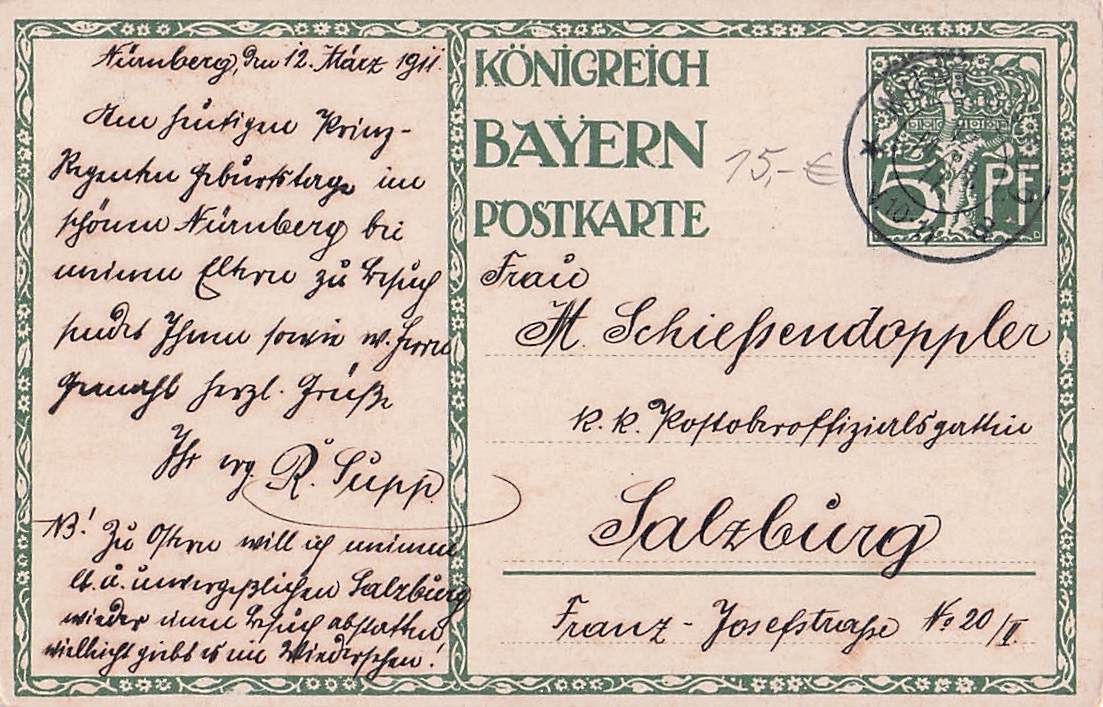 Nürnberg, den 12. März 1911.
Am heutigen Prinz-
Regenten Geburtstage im
schönen Nürnberg bei
meinen Eltern zu Besuch
sendet Ihnen sowie w. Herrn
Gemahl herzl. Grüße
Ihr erg. R. Supp.
NB! Zu Ostern will ich meinem
lb. u. unvergeßlichen Salzburg
wieder einen Besuch abstatten
vielleicht giebt es ein Wiedersehen!
KÖNIGREICH
BAYERN
POSTKARTE
15,- €
5 PF
Frau
M. Schießendoppler
k. k. Postoberoffizialsgattin
Salzburg
Franz-Josefstraße No 20/II.